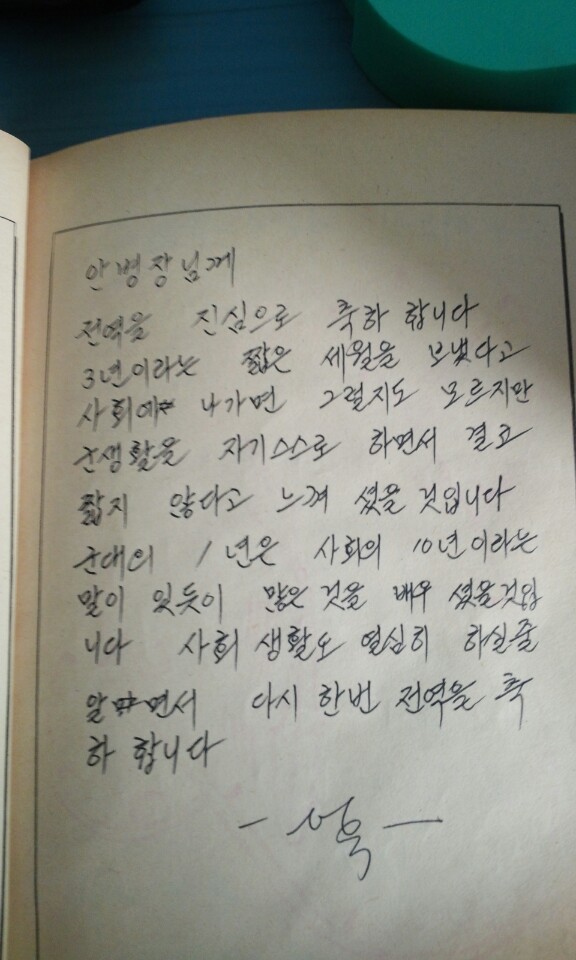 안병장님께
전역을 진심으로 축하 합니다
3년이라는 짧은 세월을 보냈다고
사회에 나가면 그럴지도 모르지만
군생활을 자기스스로 하면서 결코
짧지 않다고 느껴 셨을 것입니다
군대의 1년은 사회의 10년이라는
말이 있듯이 많은 것을 배우 셨을것입
니다 사회 생활도 열심히 하실줄
알면서 다시 한번 전역을 축
하 합니다